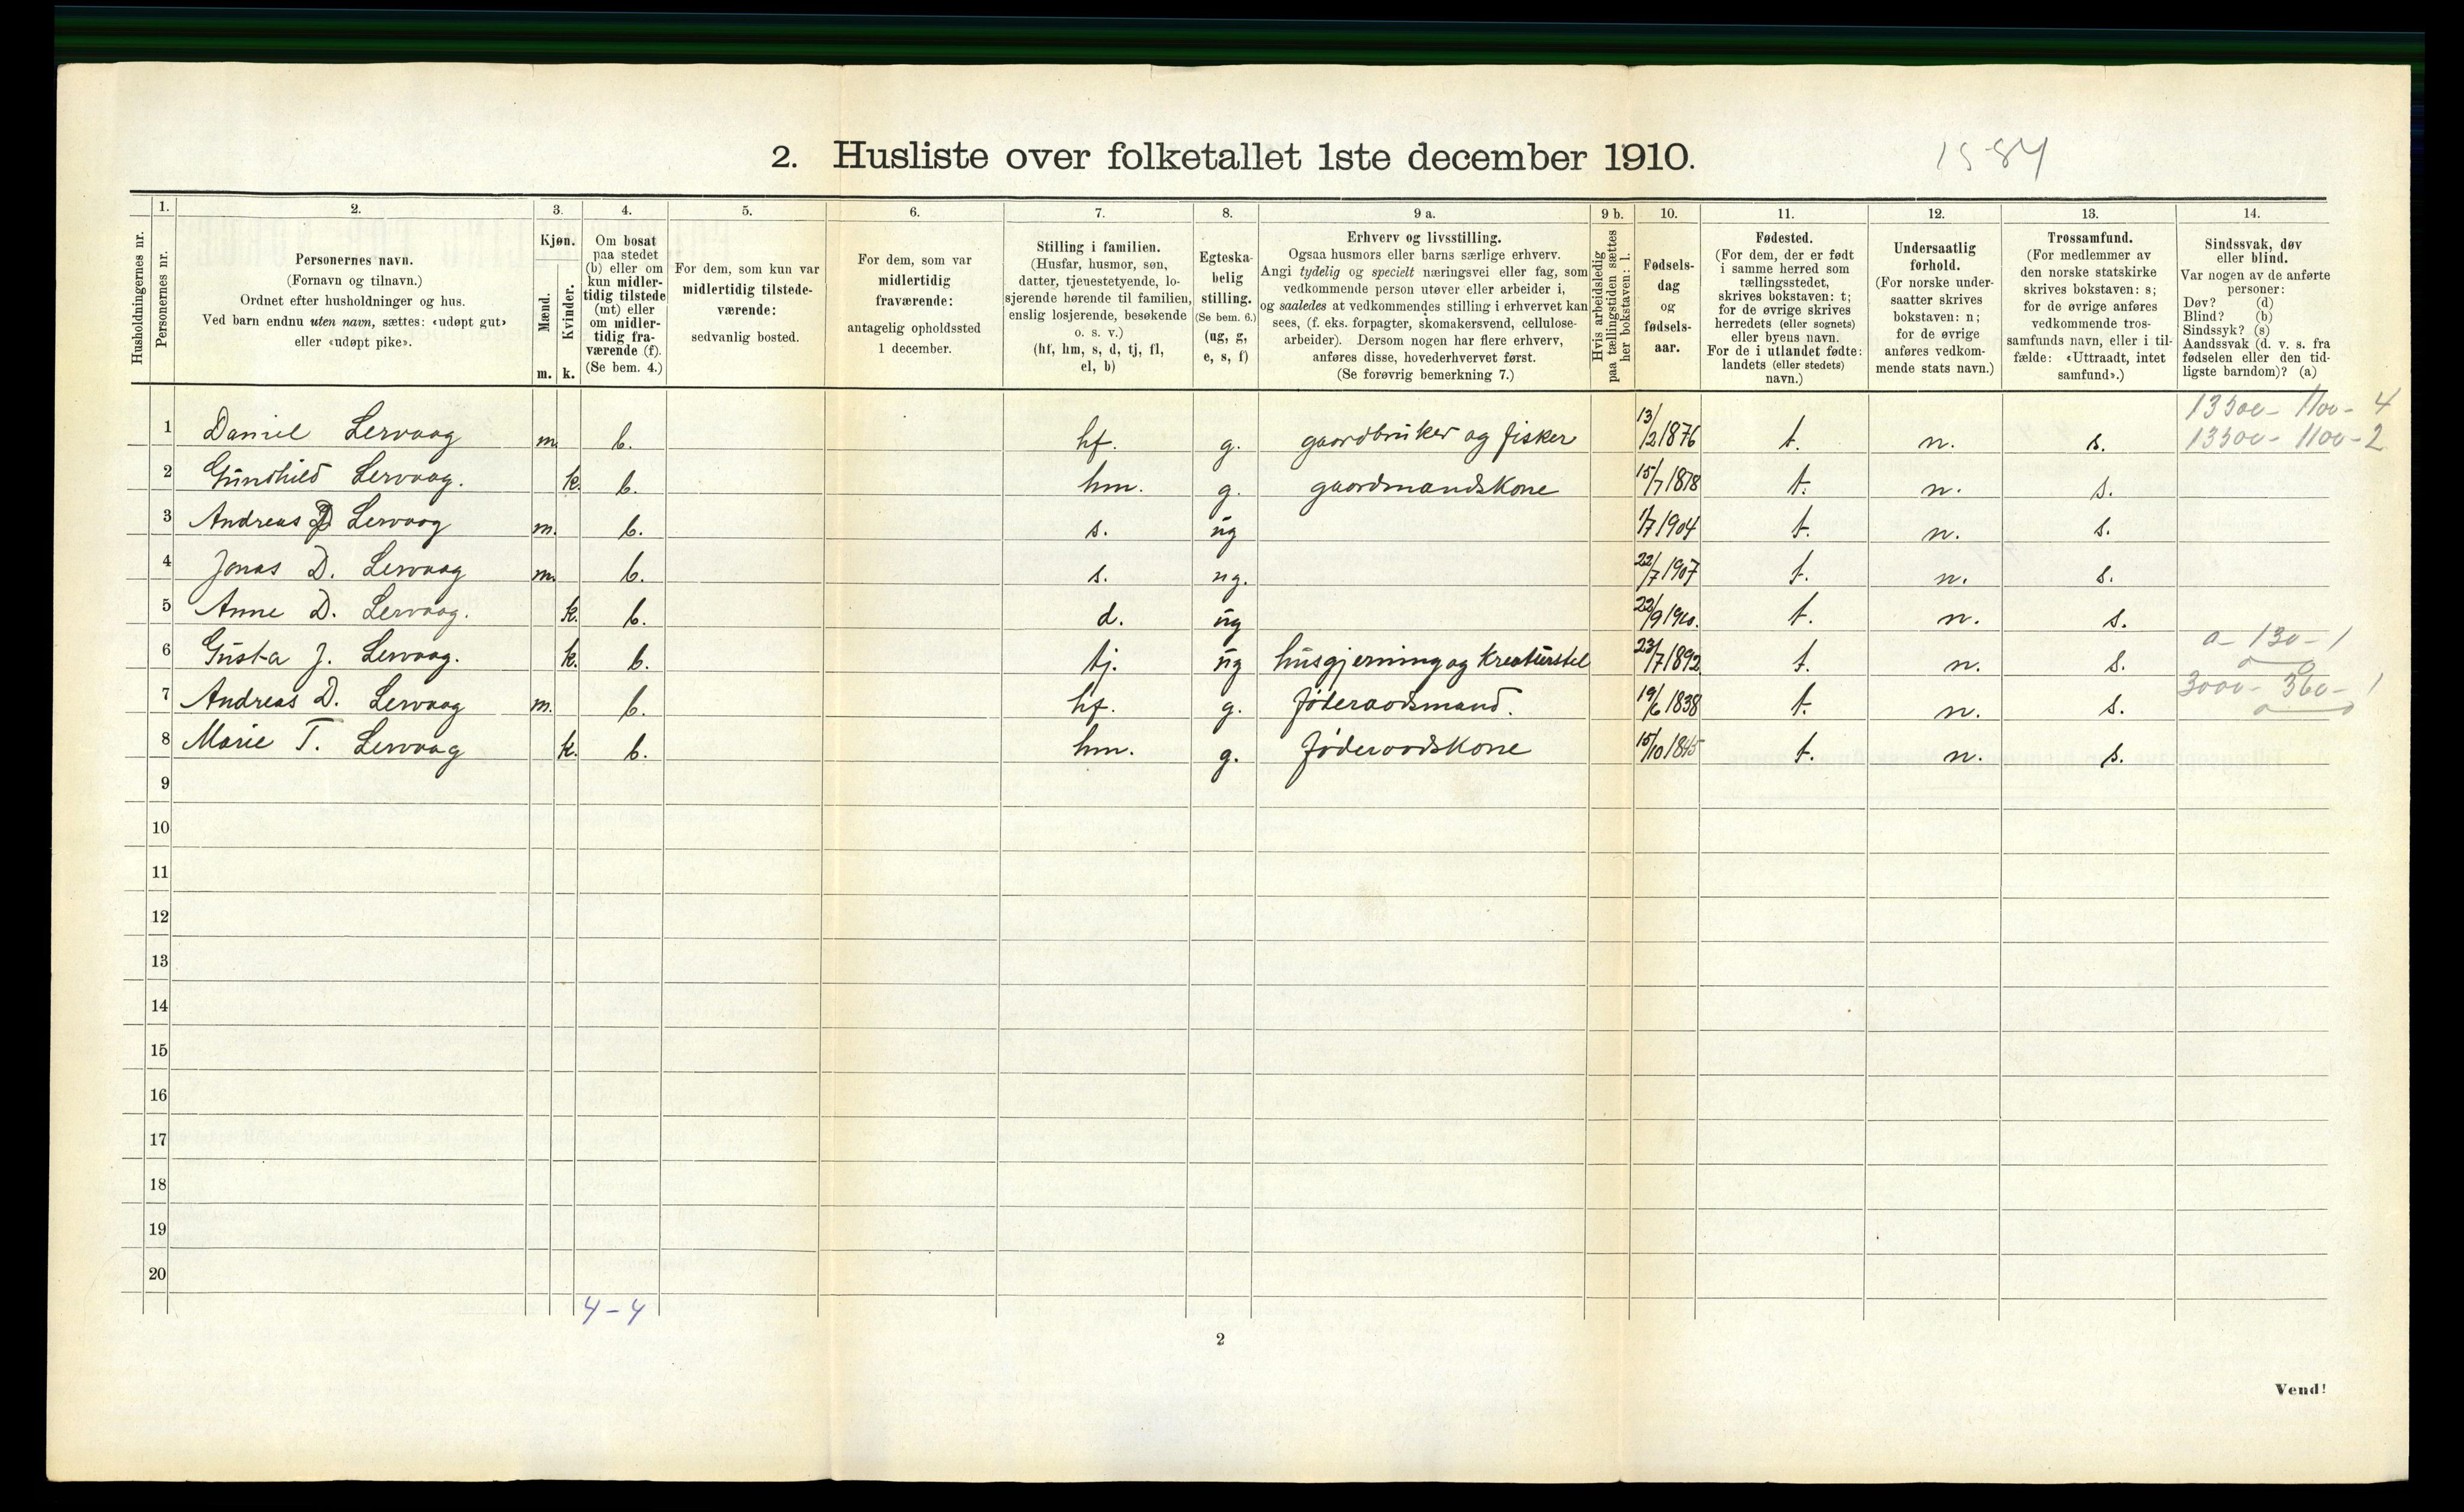 2. Husliste over folketallet 1ste december 1910.
15-84
Husholdningernes nr.
1.
Personernes nr.
2.
Personernes navn.
(Fornavn og tilnavn.)
Ordnet efter husholdninger og hus.
Ved barn endnu uten navn, sættes: «udøpt gut»
eller «udøpt pike».
3.
Kjøn.
Mænd.
Kvinder.
m. k.
4.
Om bosat
paa stedet
(b) eller om
kun midler-
tidig tilstede
(mt) eller
om midler-
tidig fra-
værende (f).
(Se bem. 4.)
5.
For dem, som kun var
midlertidig tilstede-
værende:
sedvanlig bosted.
6.
For dem, som var
midlertidig
fraværende:
antagelig opholdssted
1 december.
7.
Stilling i familien.
(Husfar, husmor, søn,
datter, tjenestetyende, lo-
sjerende hørende til familien,
enslig losjerende, besøkende
o. s. v.)
(hf, hm, s, d, tj, fl,
el, b)
8.
Egteska-
belig
stilling.
(Se bem. 6.)
(ug, g,
e, s, f)
9 a.
Erhverv og livsstilling.
Ogsaa husmors eller barns særlige erhverv.
Angi tydelig og specielt næringsvei eller fag, som
vedkommende person utøver eller arbeider i,
og saaledes at vedkommendes stilling i erhvervet kan
sees, (f. eks. forpagter, skomakersvend, cellulose-
arbeider). Dersom nogen har flere erhverv,
anføres disse, hovederhvervet først.
(Se forøvrig bemerkning 7.)
9 b.
Hvis arbeidsledig
paa tællingstiden sættes
her bokstaven: l.
10.
Fødsels-
dag
og
fødsels-
aar.
11.
Fødested.
(For dem, der er født
i samme herred som
tællingsstedet,
skrives bokstaven: t;
for de øvrige skrives
herredets (eller sognets)
eller byens navn.
For de i utlandet fødte:
landets (eller stedets)
navn.)
12.
Undersaatlig
forhold.
(For norske under-
saatter skrives
bokstaven: n;
for de øvrige
anføres vedkom-
mende stats navn.)
13.
Trossamfund.
(For medlemmer av
den norske statskirke
skrives bokstaven: s;
for de øvrige anføres
vedkommende tros-
samfunds navn, eller i til-
fælde: «Uttraadt, intet
samfund».)
14.
Sindssvak, døv
eller blind.
Var nogen av de anførte
personer:
Døv? (d)
Blind? (b)
Sindssyk? (s)
Aandssvak (d. v. s. fra
fødselen eller den tid-
ligste barndom)? (a)
13500- 1100- 4
1 Daniel Lervaag m. b. hf. g. gaardbruker og fisker 13/2 1876 t. n. s. 13500- 1100-2
2 Gunhild Lervaag. k. b. hm. g. gaardmandskone 15/7 1878 t. n. s.
3 Andreas D Lervaag m. b. s. ug 1/7 1904 t. n. s.
4 Jonas D. Lervaag m. b. s. ug. 22/7 1907 t. n. s.
5 Anne D. Lervaag. k. b. d. ug 22/9 1910. t. n. s.
6 Gusta J. Lervaag. k. b. tj. ug husgjerning og kreaturstel 23/7 1892 t. n. s. 0- 130- 1
7 Andreas D. Lervaag m. b. hf. g. føderaadsmand. 19/6 1838 t. n. s. 3000- 360- 1
8 Marie T. Lervaag k. b. hm. g. føderaadskone 15/10 1845 t. n. s.
9
10
11
12
13
14
15
16
17
18
19
20
4-4
2
Vend!